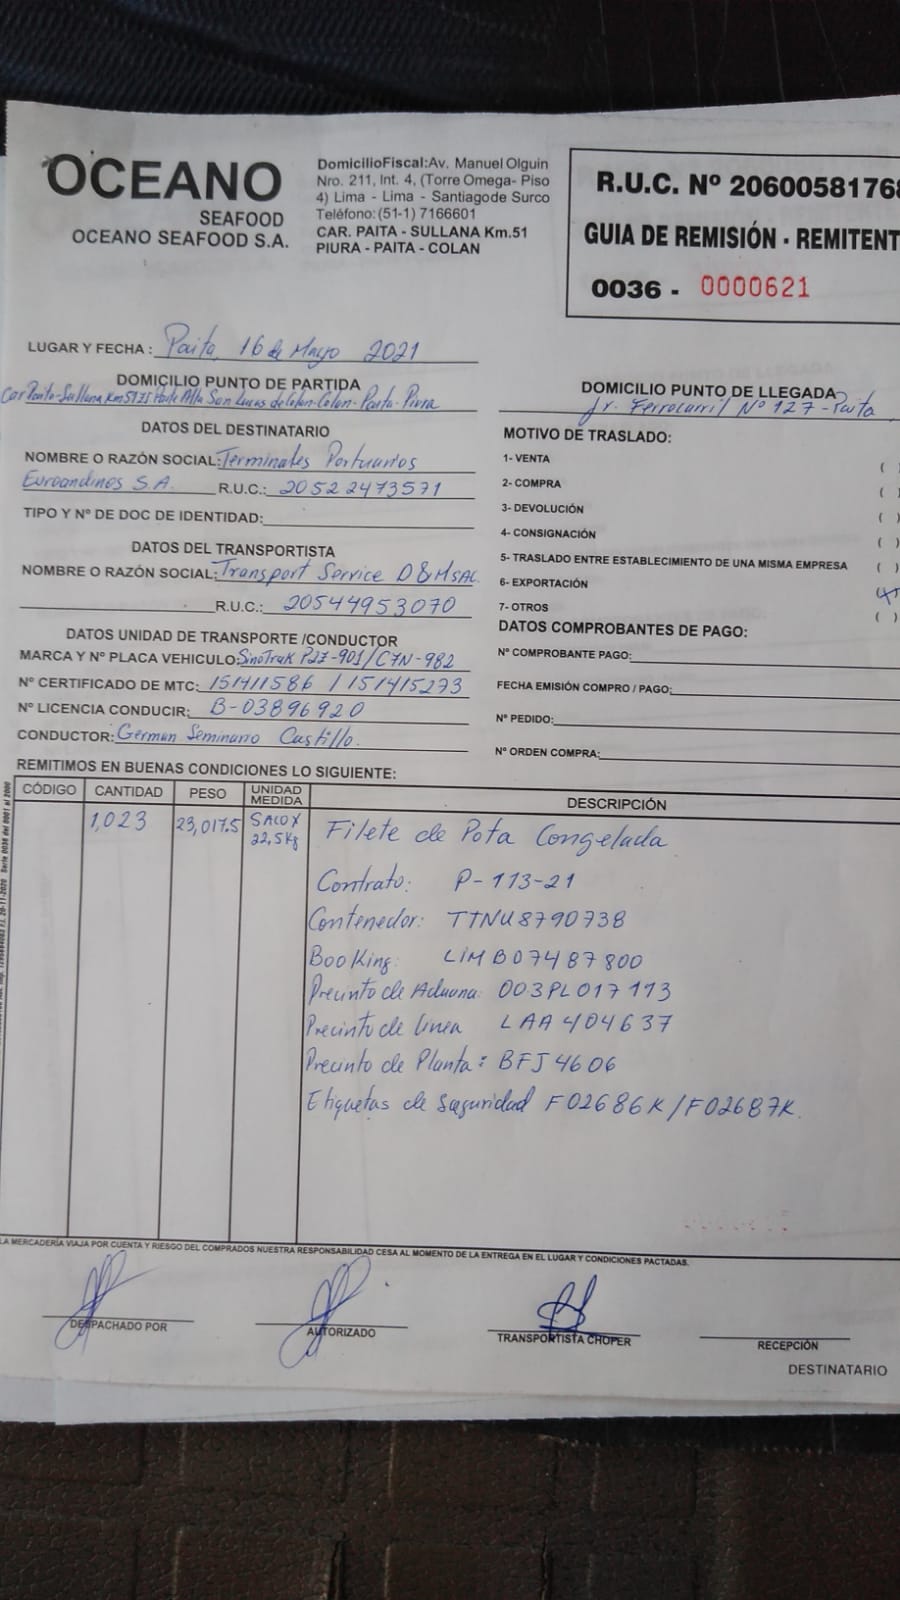 OCEANO
SEAFOOD
OCEANO SEAFOOD S.A.
DomicilioFiscal:Av. Manuel Olguin
Nro. 211, Int. 4, (Torre Omega- Piso
4) Lima - Lima - Santiagode Surco
Teléfono:(51-1) 7166601
CAR. PAITA - SULLANA Km.51
PIURA - PAITA - COLAN
R.U.C. Nº 2060058176
GUIA DE REMISIÓN - REMITENT
0036 - 0000621
LUGAR Y FECHA : Paita, 16 de Mayo 2021
DOMICILIO PUNTO DE PARTIDA
Car Paita-Sullana Km 51 Parte Alta San Lucas de Colan-Colan-Paita-Piura
DOMICILIO PUNTO DE LLEGADA
Jr. Ferrocarril Nº 127-Paita
DATOS DEL DESTINATARIO
NOMBRE O RAZÓN SOCIAL: Terminales Portuarios
Euroandinos S.A. R.U.C.: 20522473571
TIPO Y Nº DE DOC DE IDENTIDAD:
DATOS DEL TRANSPORTISTA
NOMBRE O RAZÓN SOCIAL: Transport Service D&M SAC.
R.U.C.: 20544953070
DATOS UNIDAD DE TRANSPORTE /CONDUCTOR
MARCA Y Nº PLACA VEHICULO: Sinotruk P2Z-901/C7N-982
Nº CERTIFICADO DE MTC: 151411586 / 151415273
Nº LICENCIA CONDUCIR: B-03896920
CONDUCTOR: German Seminario Castillo.
MOTIVO DE TRASLADO:
1- VENTA ( )
2- COMPRA ( )
3- DEVOLUCIÓN ( )
4- CONSIGNACIÓN ( )
5- TRASLADO ENTRE ESTABLECIMIENTO DE UNA MISMA EMPRESA ( )
6- EXPORTACIÓN (X
7- OTROS ( )
DATOS COMPROBANTES DE PAGO:
Nº COMPROBANTE PAGO:
FECHA EMISIÓN COMPRO / PAGO:
Nº PEDIDO:
Nº ORDEN COMPRA:
REMITIMOS EN BUENAS CONDICIONES LO SIGUIENTE:
CÓDIGO CANTIDAD PESO UNIDAD MEDIDA DESCRIPCIÓN
1,023 23,017.5 SACO X 22,5Kg Filete de Pota Congelada
Contrato: P-113-21
Contenedor: TTNU8790738
Booking: LIMB07487800
Precinto de Aduana: 003PL017113
Precinto de linea LAA404637
Precinto de Planta: BFJ4606
Etiquetas de Seguridad F02686K/F02687K.
LA MERCADERÍA VIAJA POR CUENTA Y RIESGO DEL COMPRADOS NUESTRA RESPONSABILIDAD CESA AL MOMENTO DE LA ENTREGA EN EL LUGAR Y CONDICIONES PACTADAS.
DESPACHADO POR
AUTORIZADO
TRANSPORTISTA CHOPER
RECEPCIÓN
DESTINATARIO